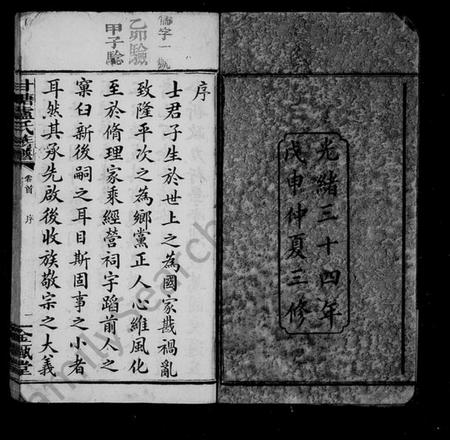 光緒三十四年
戊申仲夏三修
儒字一號
乙卯驗
甲子驗
序
士君子生於世上之為國家戡禍亂
致隆平次之為鄉黨正人心維風化
至於脩理家乘經營祠宇蹈前人之
窠臼新後嗣之耳目斯固事之小者
耳然其承先啟後收族敬宗之大義
氏族譜
卷首
序
FamilySearch